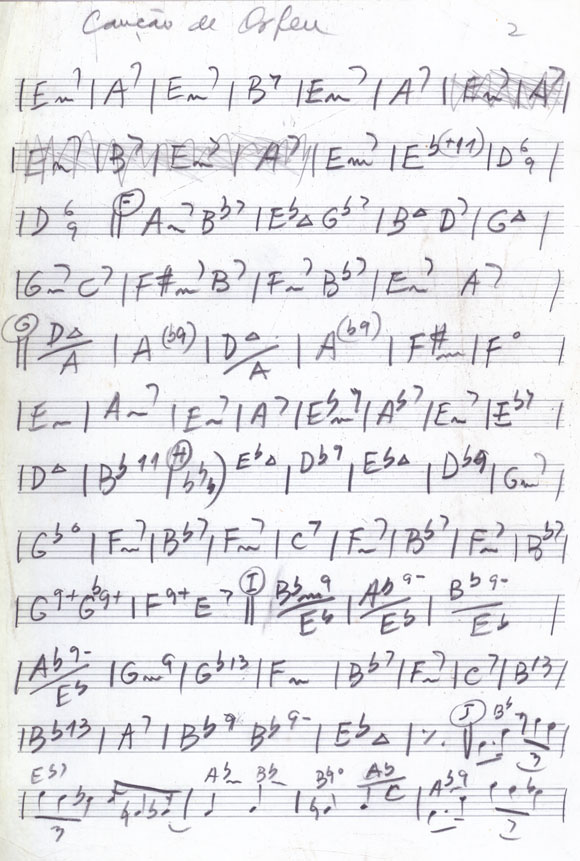 Canção de Orfeu 2
|Em7|A7|Em7|B7|Em7|A7||Em7|A7|
|Em7|B7|Em7|A7||Em7|Eb(+11)|D6/9|
|D6/9||(F) Am7 Bb7|EbΔ Gb7|BΔ D7|GΔ|
|Gm7 C7|F#m7 B7|Fm7 Bb7|Em7 A7|
(G)||DΔ/A|A(b9)|DΔ/A|A(b9)|F#m|F°
|Em|Am7|Em7|A7|Ebm7|Ab7|Em7|Eb7|
|DΔ|Bb11|(H) EbΔ|Db9|EbΔ|Db9|Gm7|
|Gb°|Fm7|Bb7|Fm7|C7|Fm7|Bb7|Fm7|Bb7|
|G9+ Gb9+|F9+ E7||(I) Bbm9/Eb|Ab9-/Eb|Bb9-/Eb|
|Ab9-/Eb|Gm9|Gb13|Fm|Bb7|Fm7|C7|B13|
|Bb13|A7|Bb9 Bb9-|EbΔ|٪||(J) Bb 3
Eb7 Ab Bb Ab/C Ab9
3